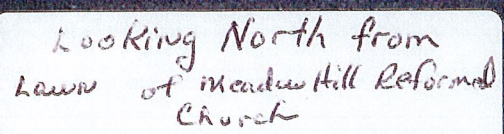 Looking North from
Lawn of Meadow Hill Reformed
Church